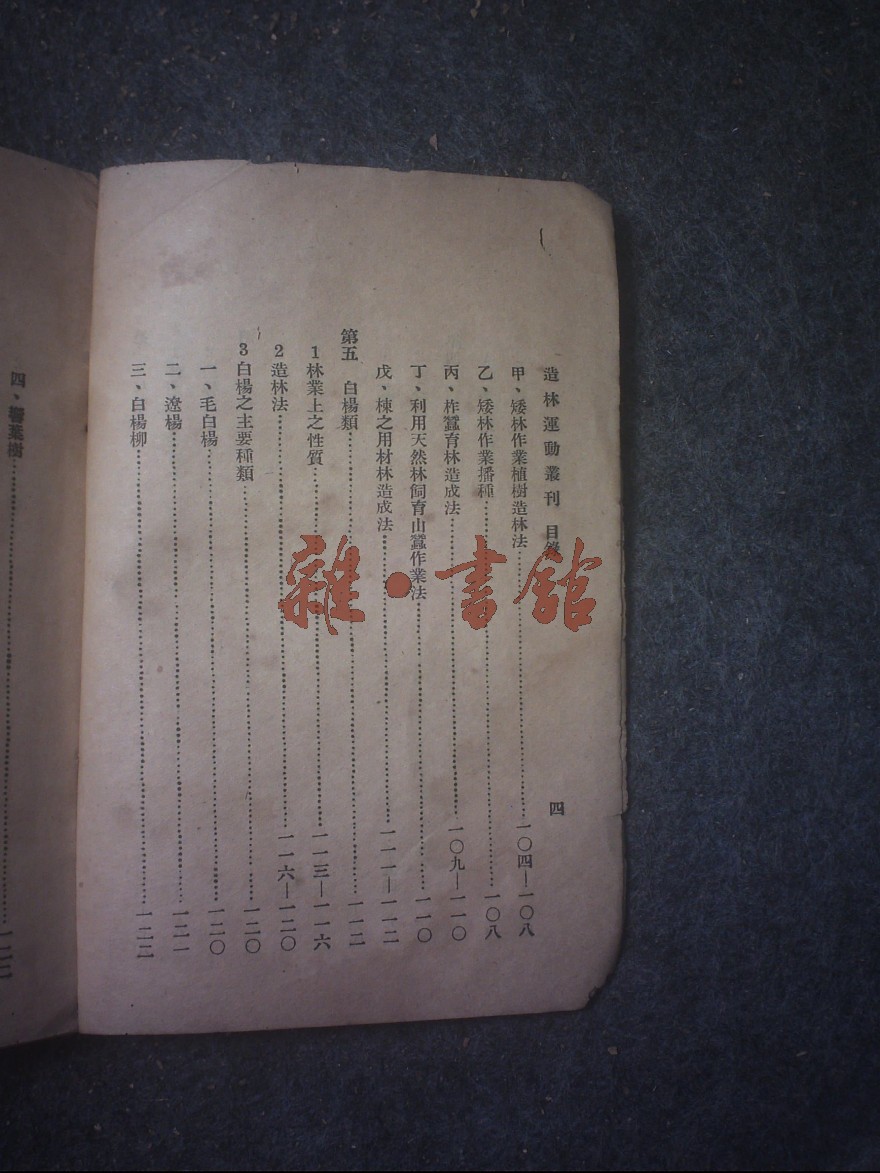 造林運動叢刊 目錄 四
甲、矮林作業植樹造林法 一〇四—一〇八
乙、矮林作業播種 一〇八
丙、柞蠶育林造成法 一〇九—一一〇
丁、利用天然林飼育山蠶作業法 一一〇
戊、楝之用材林造成法 一一一—一一二
第五 白楊類 一一二
1 林業上之性質 一一三—一一六
2 造林法 一一六—一二〇
3 白楊之主要種類 一二〇
一、毛白楊 一二〇
二、遼楊 一二一
三、白楊柳 一二二
雜·書館